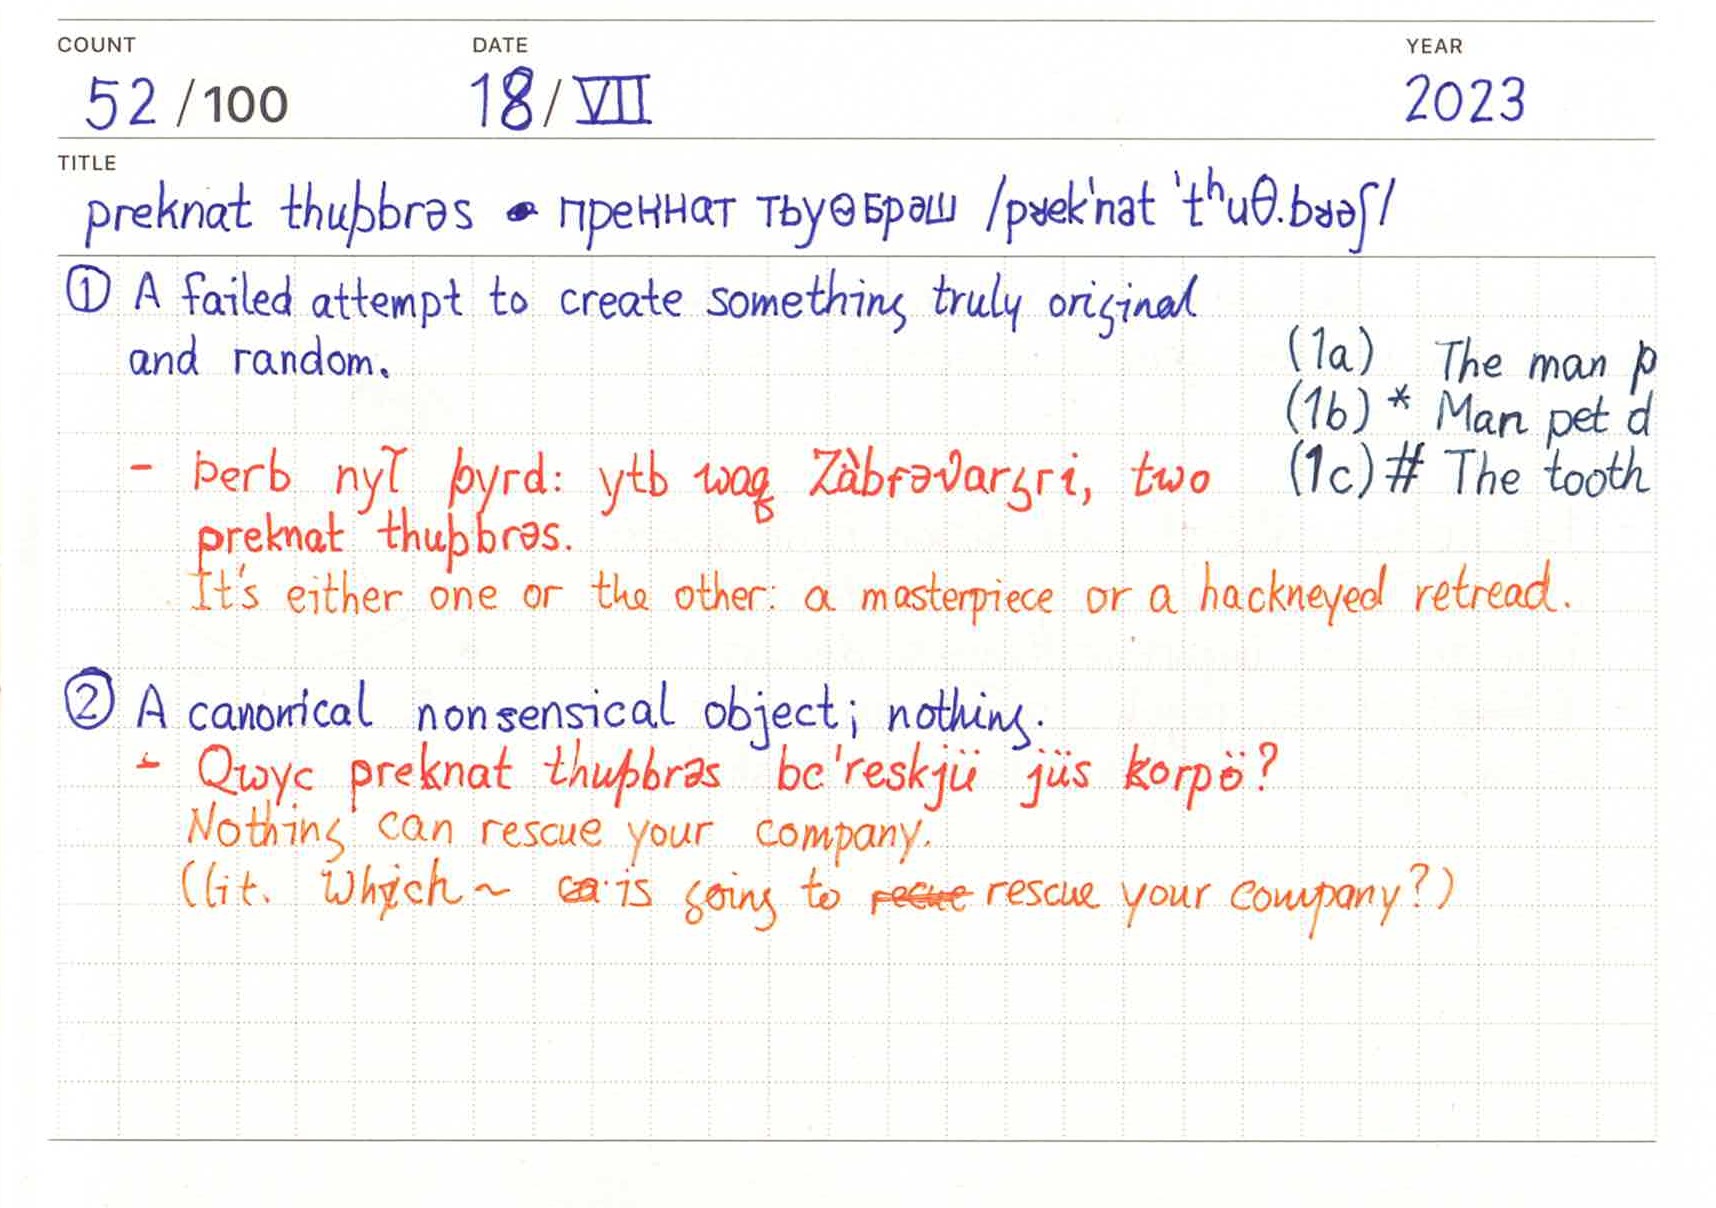 COUNT DATE YEAR
52 /100 18/VII 2023
TITLE
preknat thuþbrəs преннат тьуѳбрәш /pʁek'nət 'tʰuθ.bʁəʃ/
① A failed attempt to create something truly original
and random.
(1a) The man p
(1b) * Man pet d
(1c) # The tooth
- þerb þyrd: ytb two
preknat thuþbrəs.
It's either one or the other: a masterpiece or a hackneyed retread.
② A canonical nonsensical object; nothing.
- Qwyc preknat thuþbrəs bc'reskjü jüs korpö?
Nothing can rescue your company.
(lit. Which ~ is going to rescue your company?)